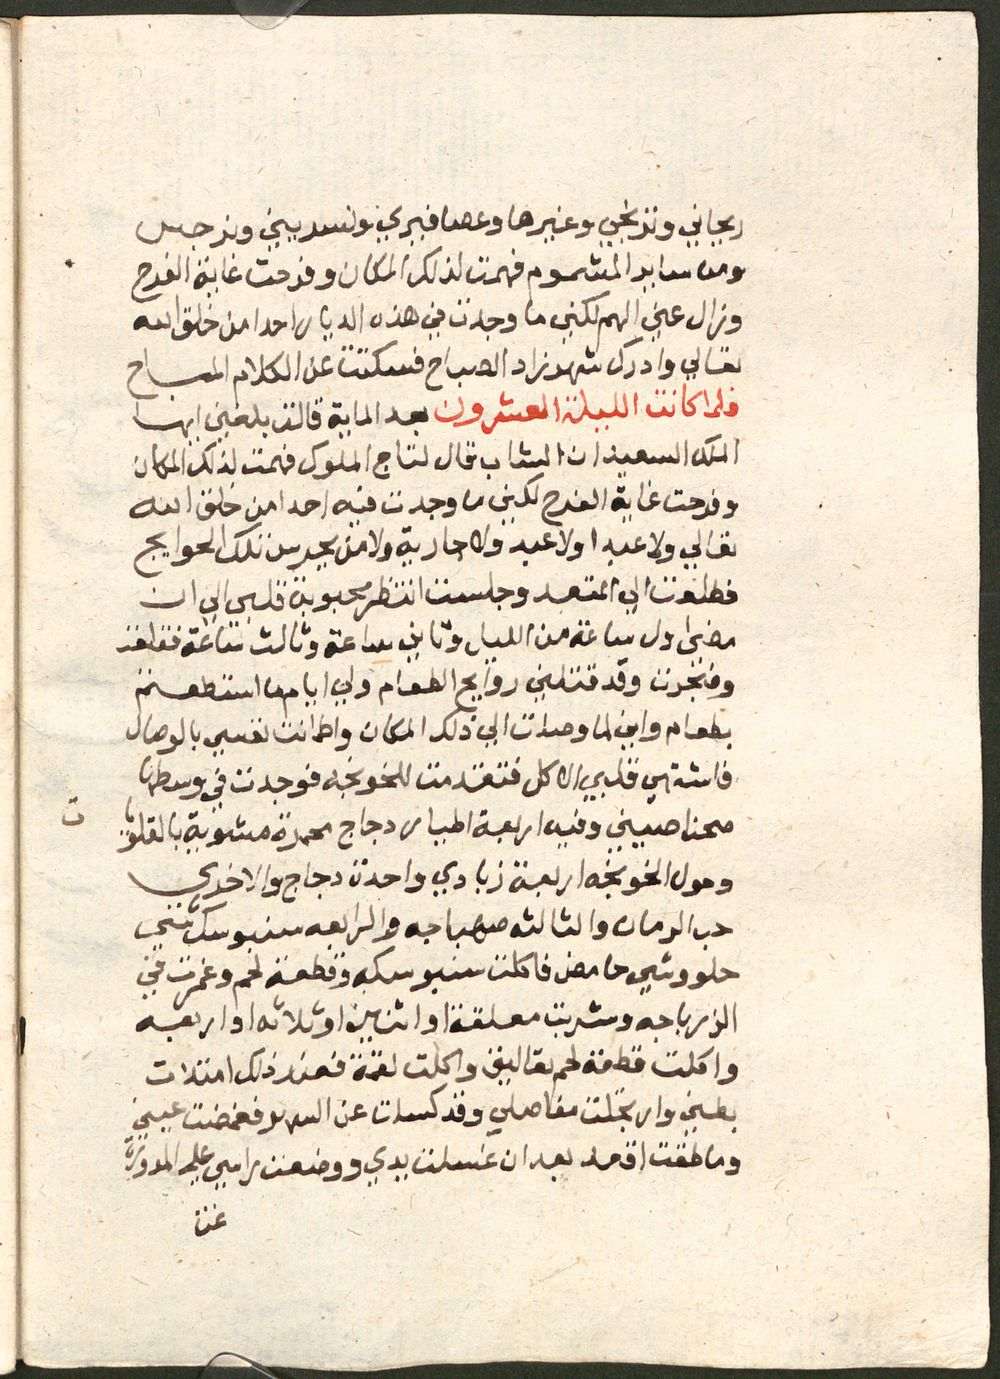 ريحاني ونرنجي وغيرها وعصافيري ونسريني ونرجس
ومن ساير المشموم فهمت لذلك المكان وفرحت غاية الفرح
وزال عني الهم لكني ما وجدت في هذه الديار احدا من خلق الله
تعالي وادرك شهرزاد الصباح فسكتت عن الكلام المباح
فلما كانت الليلة العشرون بعد الماية قالت بلغني ايها
الملك السعيد ان الشاب قال لتاج الملوك فهمت لذلك المكان
وفرحت غاية الفرح لكني ما وجدت فيه احدا من خلق الله
تعالي ولا عبدا ولا عبيد ولا جارية ولا من يحرس تلك الحوايج
فطلعت الي المقعد وجلست انتظر محبوبة قلبي الي ان
مضي اول ساعة من الليل وثاني ساعة وثالث ساعة فقلقت
وضجرت وقد قتلني روايح الطعام ولي ايام ما استطعمت
بطعام واني لما وصلت الي ذلك المكان واطمانت نفسي بالوصال
فاشتهي قلبي الاكل فتقدمت للخونجه فوجدت في وسطها
صحنا صيني وفيه اربعة اطيار دجاج محمرة مشوية بالقلوبا
ت
وحول الخونجه اربعة زبادي واحدة دجاج والاخري
حب الرمان والثالثه صهباجه والرابعه سنبوسك شي
حلو وشي حامض فاكلت سنبوسكه وقطعة لحم وغمزت في
الزرباجه وشربت معلقة او اثنين او ثلاثه او اربعه
واكلت قطعة لحم بقاليق واكلت لقمة فعند ذلك امتلات
بطني وارتخت مفاصلي وقد كسلت عن السهر فغمضت عيني
وما طقت اقعد بعد ان غسلت يدي ووضعت راسي علي المدورة
غنت